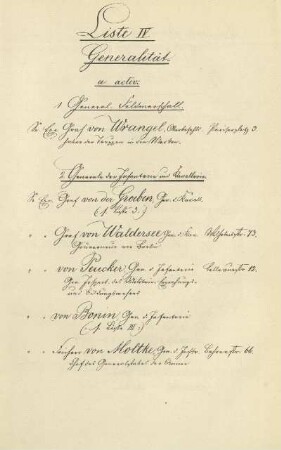 Liste IV.
Generalität.
a activ.
1 General-Feldmarschall.
Se. Exc. Graf von Wrangel, Pariserplatz 3.
in den Marken.
2 Generale der Infanterie und Cavallerie.
Se. Exc. Graf von der Groeben, Gen. d. Cavall.
(s. Liste 3.)
" " Graf von Waldersee, Gen. d. Cav. 73.
Gouverneur von Berlin
" " von Peucker, Gen. d. Infanterie 12.
Gen. Inspect. des Militair Erziehungs-
und Bildungswesens
" " von Bonin, Gen. d. Infanterie
(s. Liste III.)
" " Freiherr von Moltke, Gen. d. Inftr. Behrenstr. 66.
Chef des Generalstabes der Armee